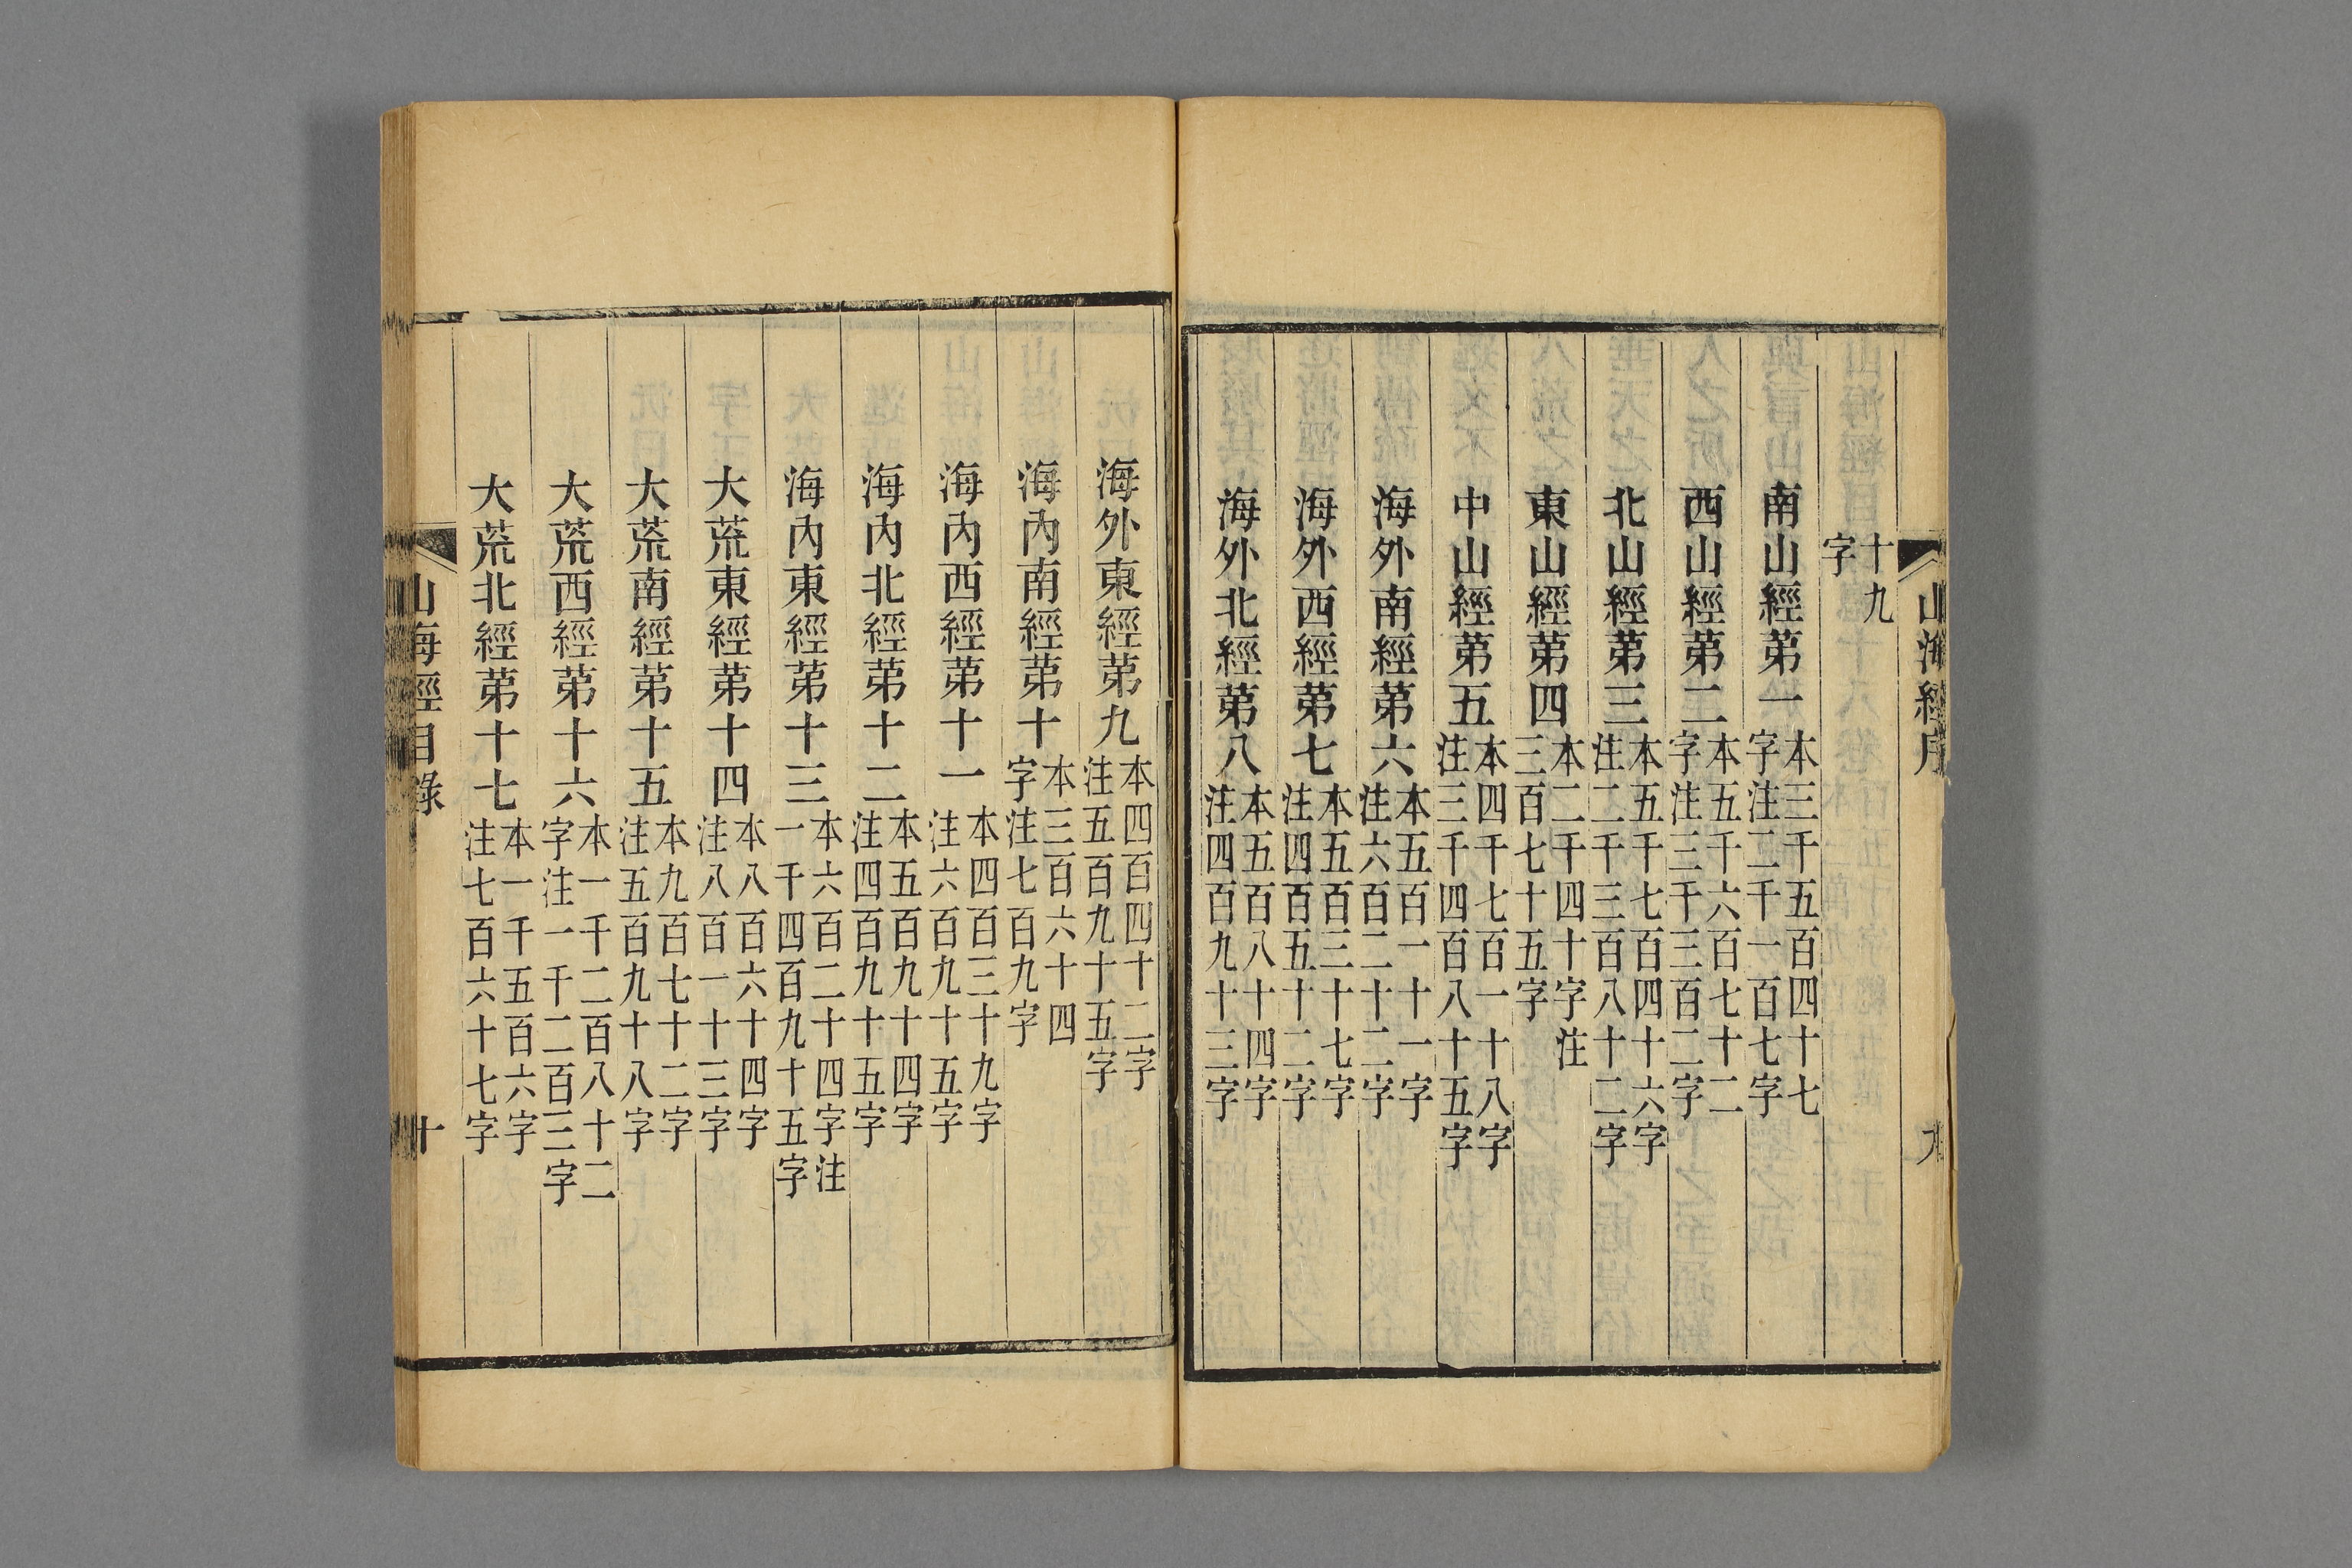 山海經序
九
十九
字
南山經第一 本三千五百四十七
字注二千一百七字
西山經第二 本五千六百七十二
字注三千三百二字
北山經第三 本五千七百四十六字
注二千三百八十二字
東山經第四 本二千四十字注
三百七十五字
中山經第五 本四千七百一十八字
注三千四百八十五字
海外南經第六 本五百一十一字
注六百二十二字
海外西經第七 本五百三十七字
注四百五十二字
海外北經第八 本五百八十四字
注四百九十三字
海外東經第九 本四百四十二字
注五百九十五字
海內南經第十 本三百六十四
字注七百九字
海內西經第十一 本四百三十九字
注六百九十五字
海內北經第十二 本五百九十四字
注四百九十五字
海內東經第十三 本六百二十四字注
一千四百九十五字
大荒東經第十四 本八百六十四字
注八百一十三字
大荒南經第十五 本九百七十二字
注五百九十八字
大荒西經第十六 本一千二百八十二
字注一千二百三字
大荒北經第十七 本一千五百六字
注七百六十七字
山海經目錄
十